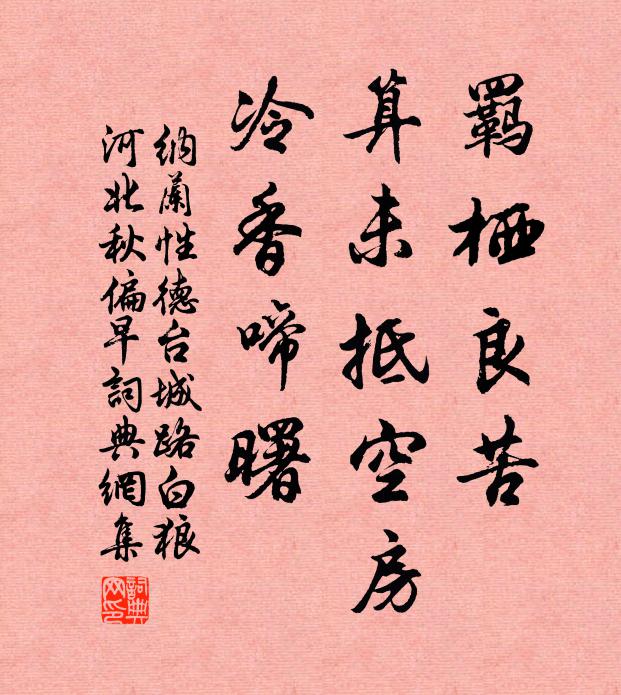 羈栖良苦
算未抵空房
冷香啼曙
納蘭性德台城路白狼
河北秋偏早詞典網集
詞典
网印